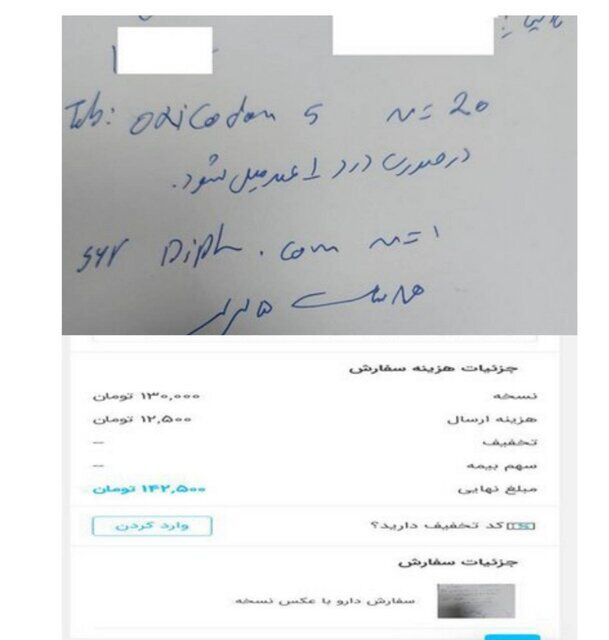 Tab: oxicodon 5 N=20
در صورت درد ۱ عدد میل شود.
syr Diph. com N=1
هر ۸ ساعت ۵ سی سی
جزئیات هزینه سفارش
نسخه ۱۳۰,۰۰۰ تومان
هزینه ارسال ۱۲,۵۰۰ تومان
تخفیف --
سهم بیمه --
مبلغ نهایی ۱۴۲,۵۰۰ تومان
کد تخفیف دارید؟ وارد کردن
جزئیات سفارش
سفارش دارو با عکس نسخه